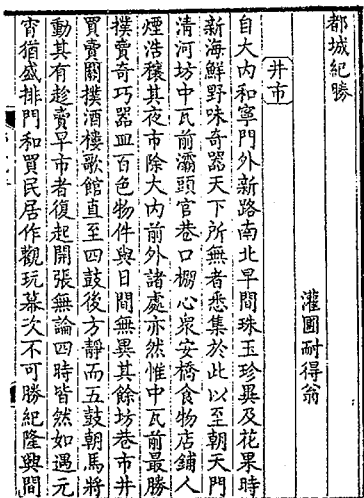 都城紀勝
灌圃耐得翁
井市
自大内和寧門外新路南北早間珠玉珍異及花果時
新海鮮野味奇器天下所無者悉集於此以至朝天門
清河坊中瓦前灞頭官巷口棚心衆安橋食物店鋪人
煙浩穰其夜市除大内前外諸處亦然惟中瓦前最勝
撲賣奇巧器皿百色物件與日間無異其餘坊巷市井
買賣關撲酒樓歌館直至四鼓後方靜而五鼓朝馬將
動其有趁賣早市者復起開張無論四時皆然如遇元
宵猶盛排門和買民居作觀玩幕次不可勝紀隆興間